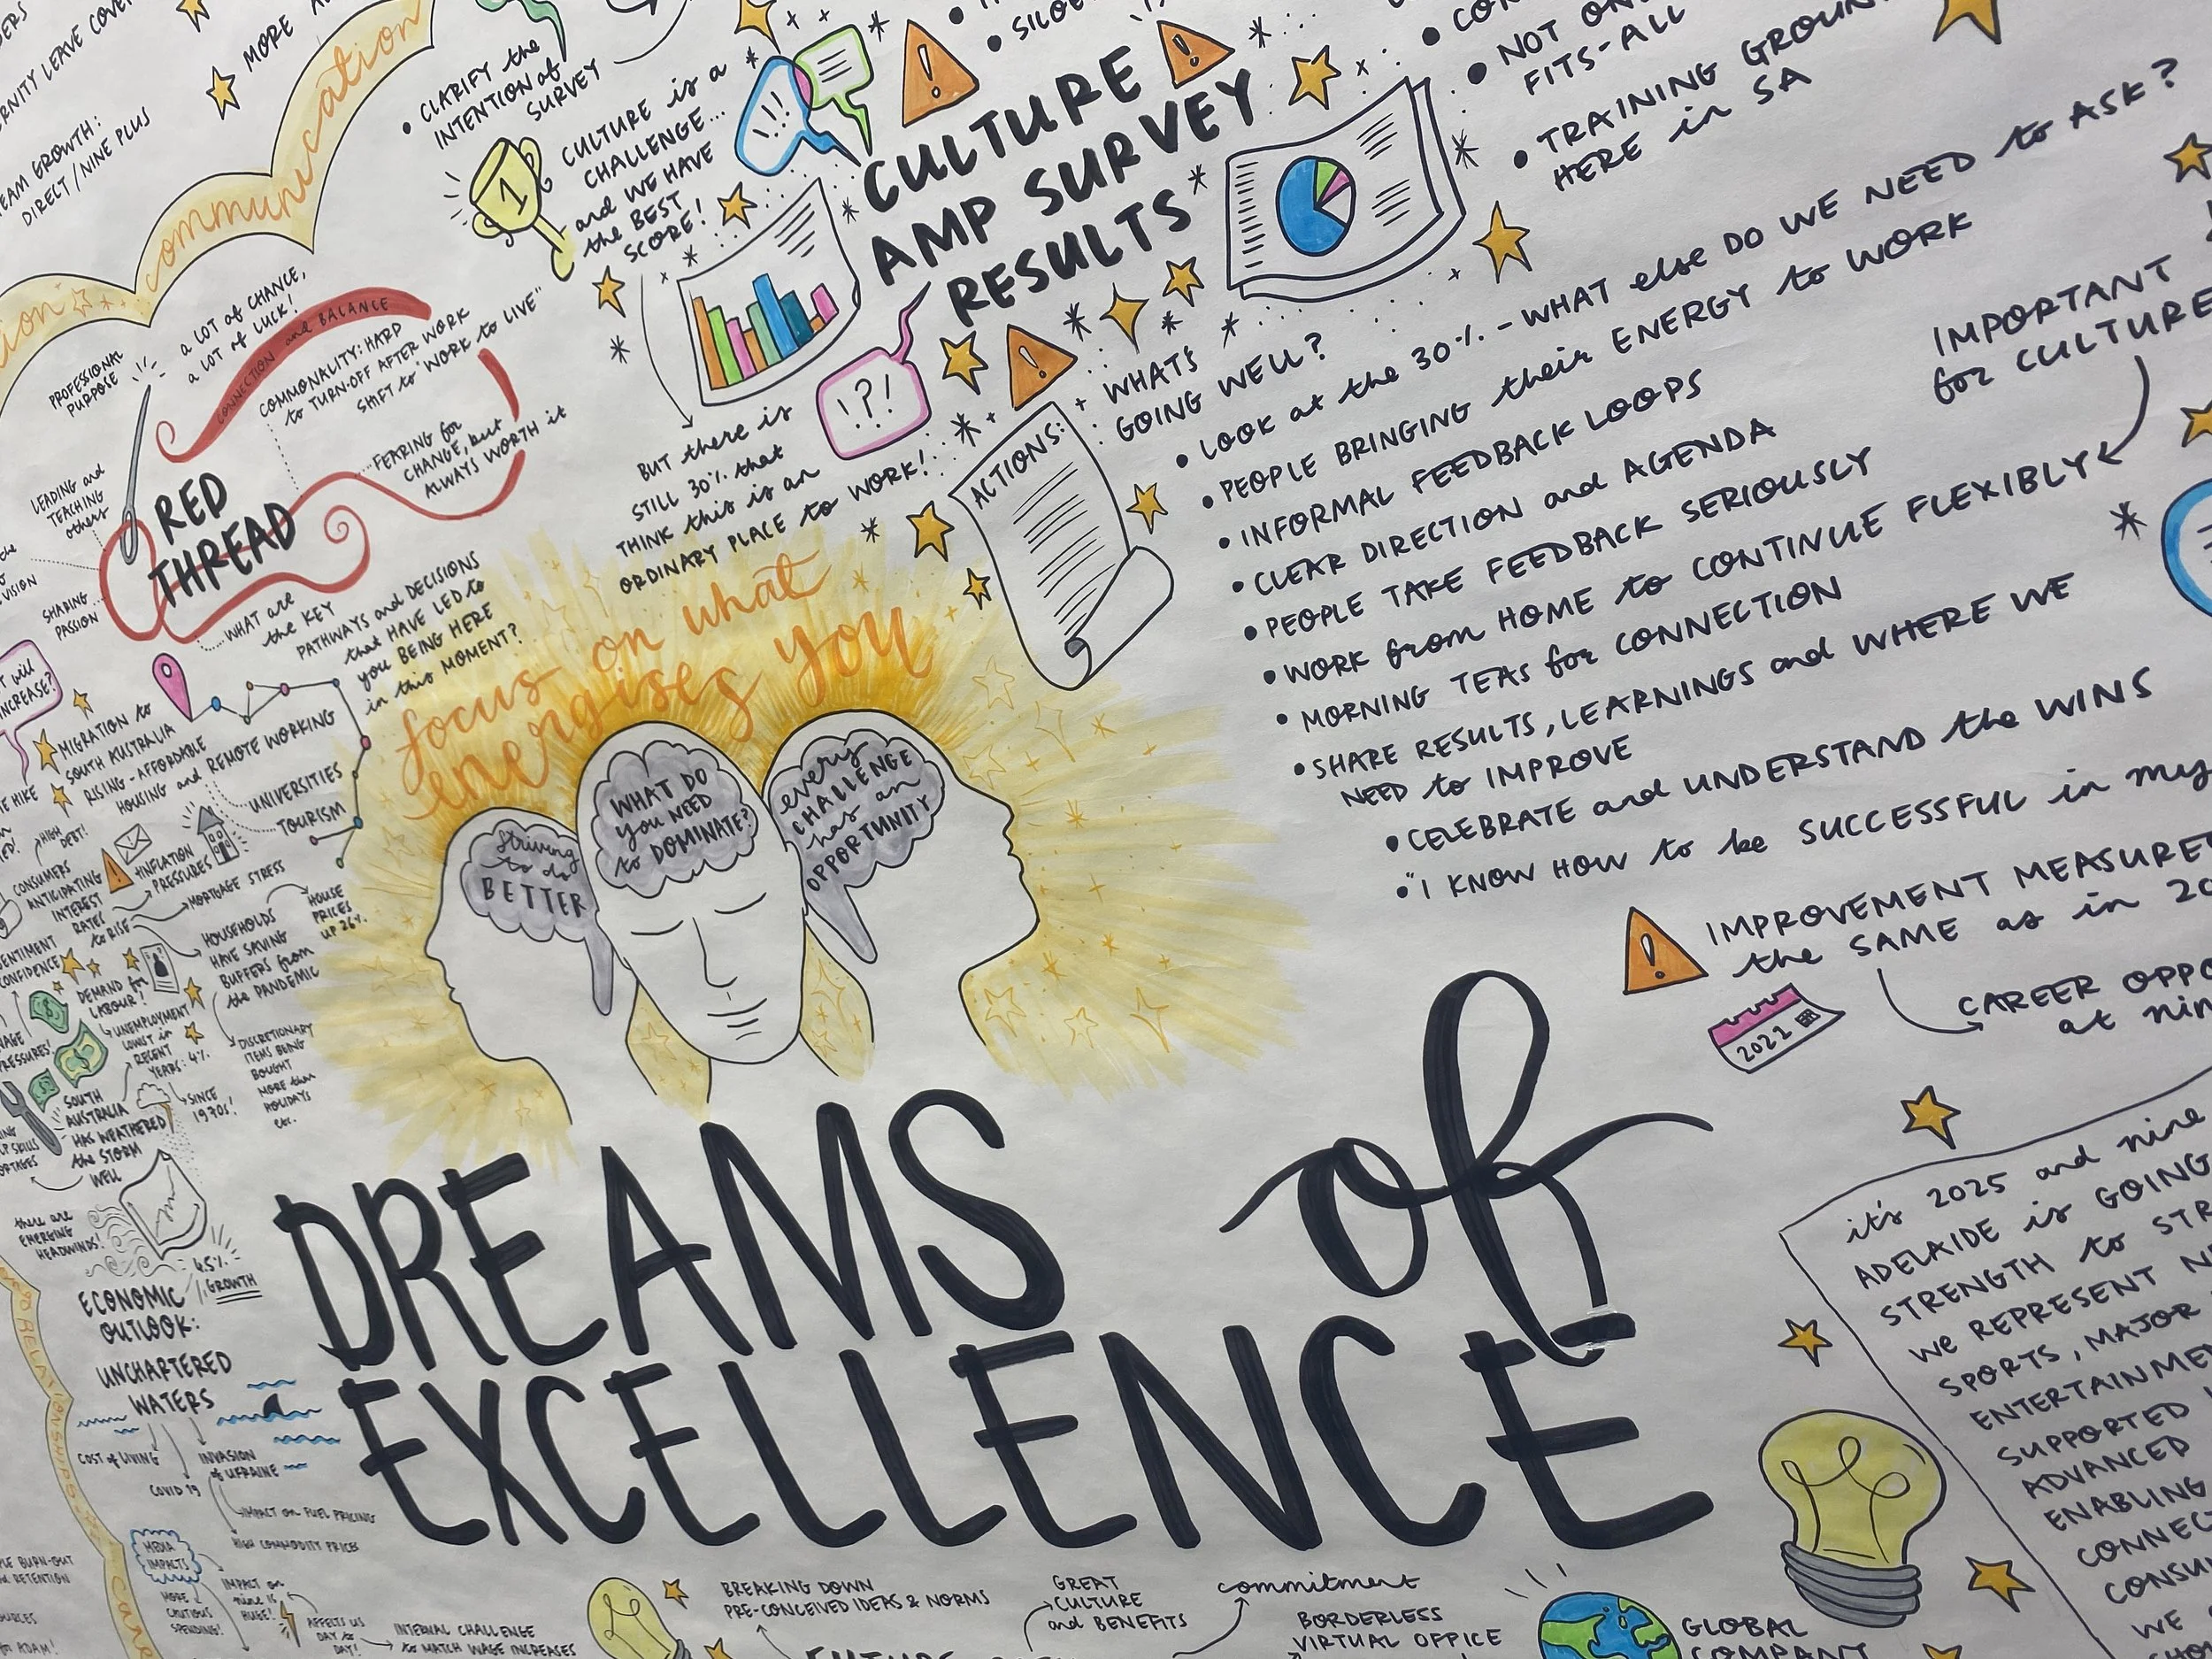 MORE
communication
TEAM GROWTH:
DIRECT/NINE PLUS
• CLARIFY the
INTENTION of
SURVEY
1
CULTURE is a
CHALLENGE...
and WE HAVE
the BEST
SCORE!
BUT there is
STILL 30% that
THINK this is an
ORDINARY PLACE to WORK!
!!!
CULTURE
AMP SURVEY
RESULTS
!?!
• NOT
FITS-ALL
• TRAINING
HERE in SA
ACTIONS:
WHAT'S
GOING WELL?
• LOOK at the 30% - WHAT else DO WE NEED to ASK?
• PEOPLE BRINGING their ENERGY to WORK
• INFORMAL FEEDBACK LOOPS
• CLEAR DIRECTION and AGENDA
• PEOPLE TAKE FEEDBACK SERIOUSLY
• WORK from HOME to CONTINUE FLEXIBLY
IMPORTANT
for CULTURE
• MORNING TEAS for CONNECTION
• SHARE RESULTS, LEARNINGS and WHERE WE
NEED to IMPROVE
• CELEBRATE and UNDERSTAND the WINS
• "I KNOW HOW to be SUCCESSFUL in my
IMPROVEMENT
the SAME as in
2022
CAREER
at
PROFESSIONAL
PURPOSE
a LOT of CHANCE,
a LOT of LUCK!
CONNECTION and BALANCE
COMMONALITY: HARD
to TURN-OFF AFTER WORK
SHIFT to "WORK to LIVE"
FEARING for
CHANGE, but
ALWAYS WORTH it
LEADING and
TEACHING
others
SHARING
PASSION
RED
THREAD
WHAT are
the KEY
PATHWAYS and DECISIONS
that HAVE LED to
you BEING HERE
in this MOMENT?
MIGRATION to
SOUTH AUSTRALIA
RISING - AFFORDABLE
HOUSING and REMOTE WORKING
UNIVERSITIES
TOURISM
HIGH
DEBT!
CONSUMERS
ANTICIPATING
INTEREST
RATES
to RISE
INFLATION
PRESSURES
MORTGAGE STRESS
HOUSE
PRICES
UP 26%
HOUSEHOLDS
HAVE SAVING
BUFFERS from
the PANDEMIC
DISCRETIONARY
ITEMS BEING
BOUGHT
MORE than
HOLIDAYS
etc.
DEMAND for
LABOUR!
UNEMPLOYMENT
LOWEST in
RECENT
YEARS: 4%
SINCE
1970s!
SOUTH
AUSTRALIA
HAS WEATHERED
the STORM
WELL
there are
EMERGING
HEADWINDS!
4.5%
GROWTH
ECONOMIC
OUTLOOK:
UNCHARTERED
WATERS
COST of LIVING
COVID 19
INVASION
of UKRAINE
IMPACT on FUEL PRICING
HIGH COMMODITY PRICES
MEDIA
IMPACTS
MORE
CAUTIOUS
SPENDING!
IMPACT on
nine is
HUGE!
AFFECTS US
DAY to
DAY!
INTERNAL CHALLENGE
to MATCH WAGE INCREASES
focus on what
energises you
striving
to do
BETTER
WHAT DO
you NEED
to DOMINATE?
every
CHALLENGE
has an
OPPORTUNITY
DREAMS of
EXCELLENCE
it's 2025 and nine
ADELAIDE is GOING
STRENGTH to
WE REPRESENT
SPORTS, MAJOR
SUPPORTED
ADVANCED
ENABLING
WE
BREAKING DOWN
PRE-CONCEIVED IDEAS & NORMS
GREAT
CULTURE
and BENEFITS
commitment
BORDERLESS
VIRTUAL OFFICE
GLOBAL
COMPANY